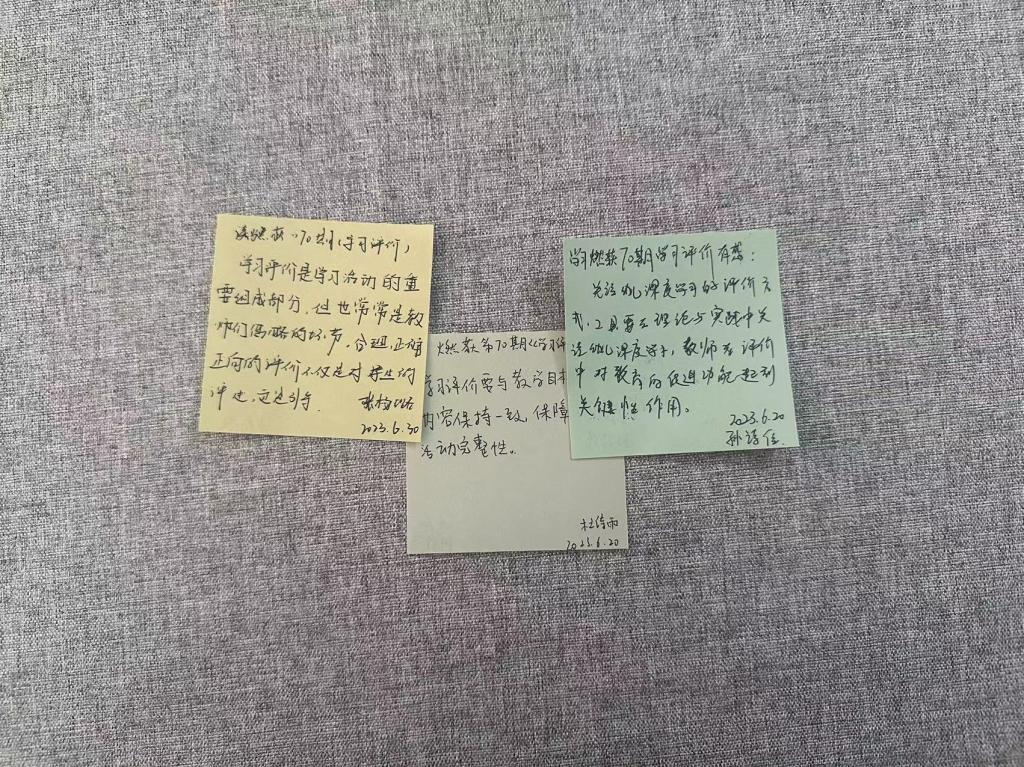 读燃荻 70期(学习评价)
学习评价是学习活动的重
要组成部分,但也常常是教
师们忽略的环节。合理、正确
正向的评价不仅是对学生的
评述,
2023.6.30
燃荻第70期《学习评
学习评价需与教学目标
内容保持一致,保障
活动完整性。
杜倚雨
2023.6.20
学习燃荻70期学习评价有感:
关注幼儿深度学习的评价方
式,工具要在理论与实践中关
注幼儿深度学习,教师在评价
中对教育的促进功能起到
关键性作用。
2023.6.20